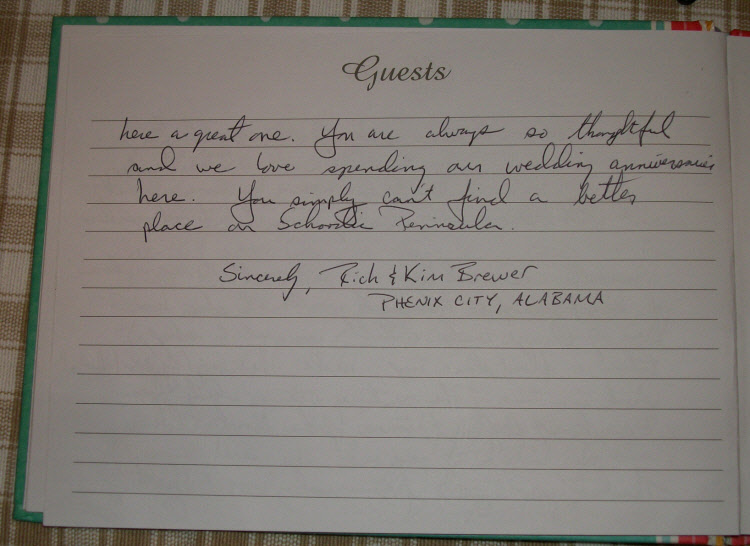 Guests
here a great one. You are always so thoughtful
and we love spending our wedding anniversaries
here. You simply can't find a better
place on Schoodic Peninsula.
Sincerely, Rich & Kim Brewer
PHENIX CITY, ALABAMA